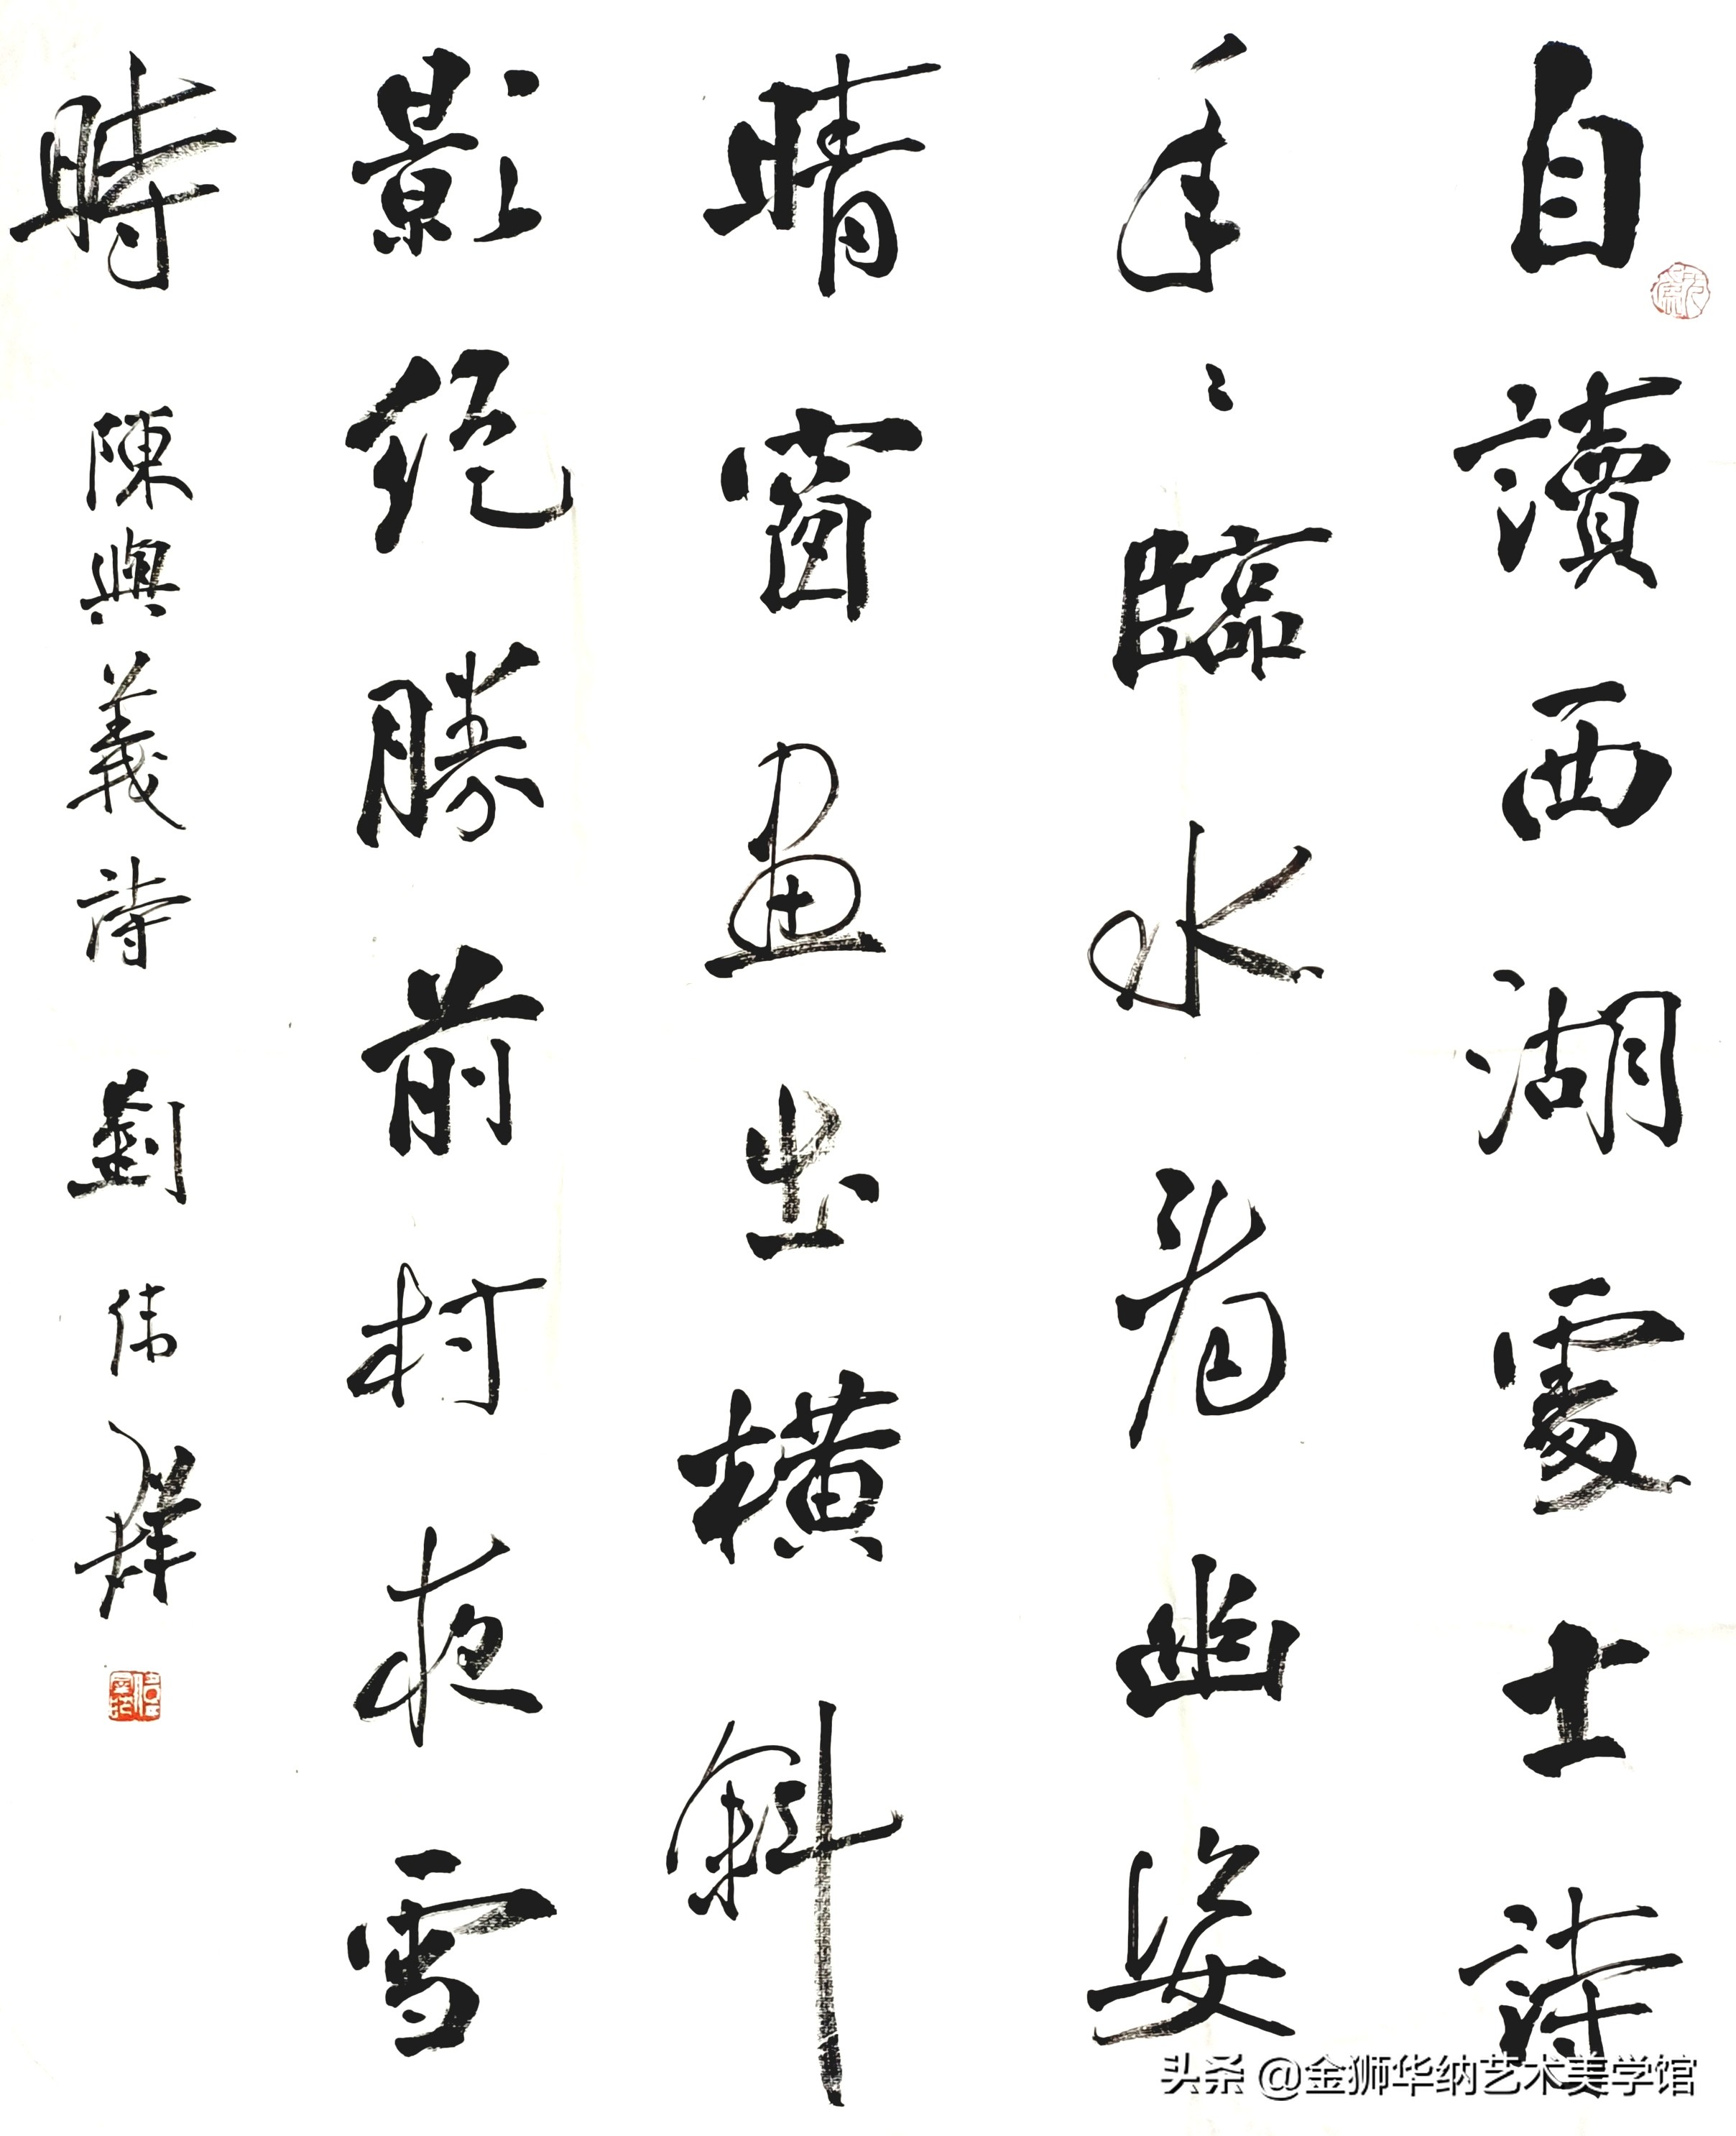 自讀西湖處士詩
年〻臨水看幽姿
晴窗画出橫斜
影絕勝前村夜雪
時
陳與義詩 劉伟祥
头条 @金狮华纳艺术美学馆